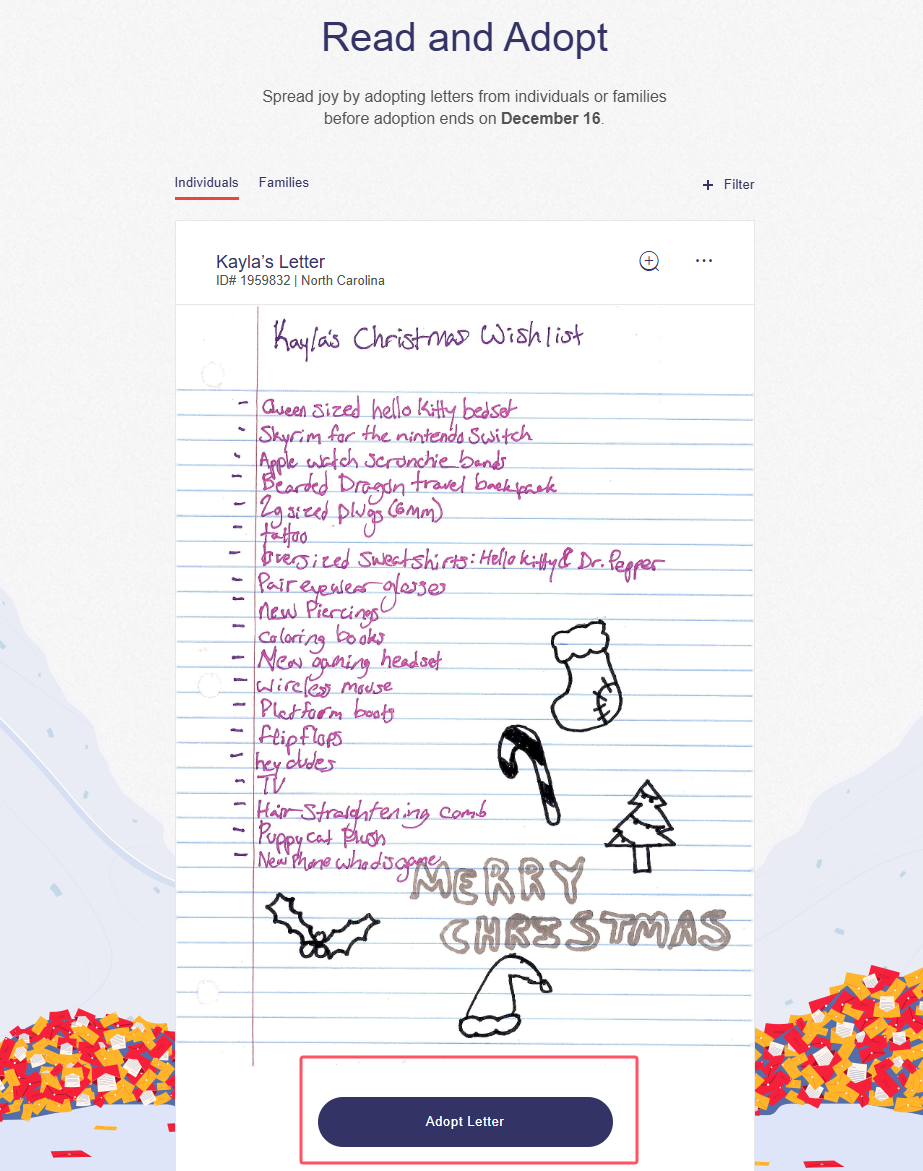 Read and Adopt
Spread joy by adopting letters from individuals or families
before adoption ends on December 16.
Individuals Families + Filter
Kayla's Letter
ID# 1959832 | North Carolina
Kayla's Christmas Wishlist
- Queen sized hello Kitty bedset
- Skyrim for the nintendo Switch
- Apple watch scrunchie bands
- Bearded Dragon travel backpack
- 2g sized plugs (6mm)
- tattoo
- Oversized Sweatshirts: Hello Kitty & Dr. Pepper
- Pair eyewear glasses
- new Piercings
- coloring books
- New gaming headset
- wireless mouse
- Platform boots
- flip flops
- hey dudes
- TV
- Hair Straightening comb
- Puppycat Plush
- New Phone who dis game
MERRY
CHRISTMAS
Adopt Letter